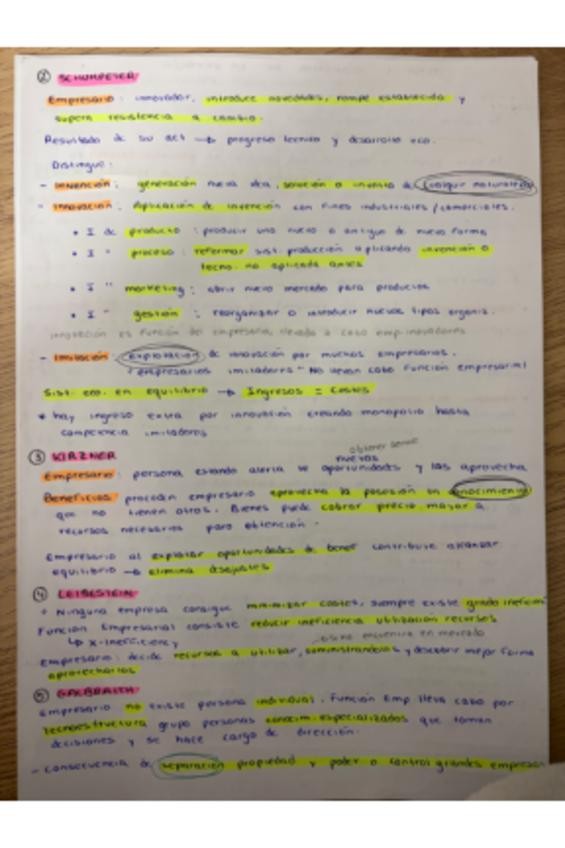 ② SCHUMPETER
Empresario: innovador, introduce novedades, rompe establecido y
supera resistencia a cambio.
Resultado de su act → progreso tecnico y desarrollo eco.
Distingue:
- Invención: generación nueva idea, solución o invento de cualquier naturaleza
- Innovación: Aplicación de invención con fines industriales / comerciales.
• I de producto: producir uno nuevo o antiguo de nueva forma
• I " proceso: reformar sist. producción aplicando invención o
tecno. no aplicada antes
• I " marketing: abrir nuevo mercado para productos
• I " gestión: reorganizar o introducir nuevos tipos organiz.
innovación es función del empresario, llevada a cabo emp. innovadores
- Imitación: explotación de innovación por muchos empresarios.
empresarios imitadores - No llevan cabo función empresarial
Sist. eco. en equilibrio → Ingresos = Costes
* hay ingreso extra por innovación creando monopolio hasta
competencia imitadores
③ KIRZNER
obtener
nuevas
Empresario: persona estando alerta ve oportunidades y las aprovecha
Beneficios: proceden empresario aprovecha la posesión en conocimiento
que no tienen otros. Bienes puede cobrar precio mayor a
recursos necesarios para obtención.
Empresario al explotar oportunidades de benef contribuye alcanzar
equilibrio → elimina desajustes
④ LEIBESTEIN
+ Ninguna empresa consigue minimizar costes, siempre existe grado
Función Empresarial consiste reducir ineficiencia utilización recursos
↳ X-inefficiency
encuentra en mercado
Empresario: decide recursos a utilizar, suministrandolos y descubrir mejor forma
aprovecharlos
⑤ GALBRAITH
Empresario no existe persona individual. Función Emp lleva cabo por
tecnoestructura grupo personas conocim. especializados que toman
decisiones y se hace cargo de dirección.
- consecuencia de separación propiedad y poder o control grandes empresas